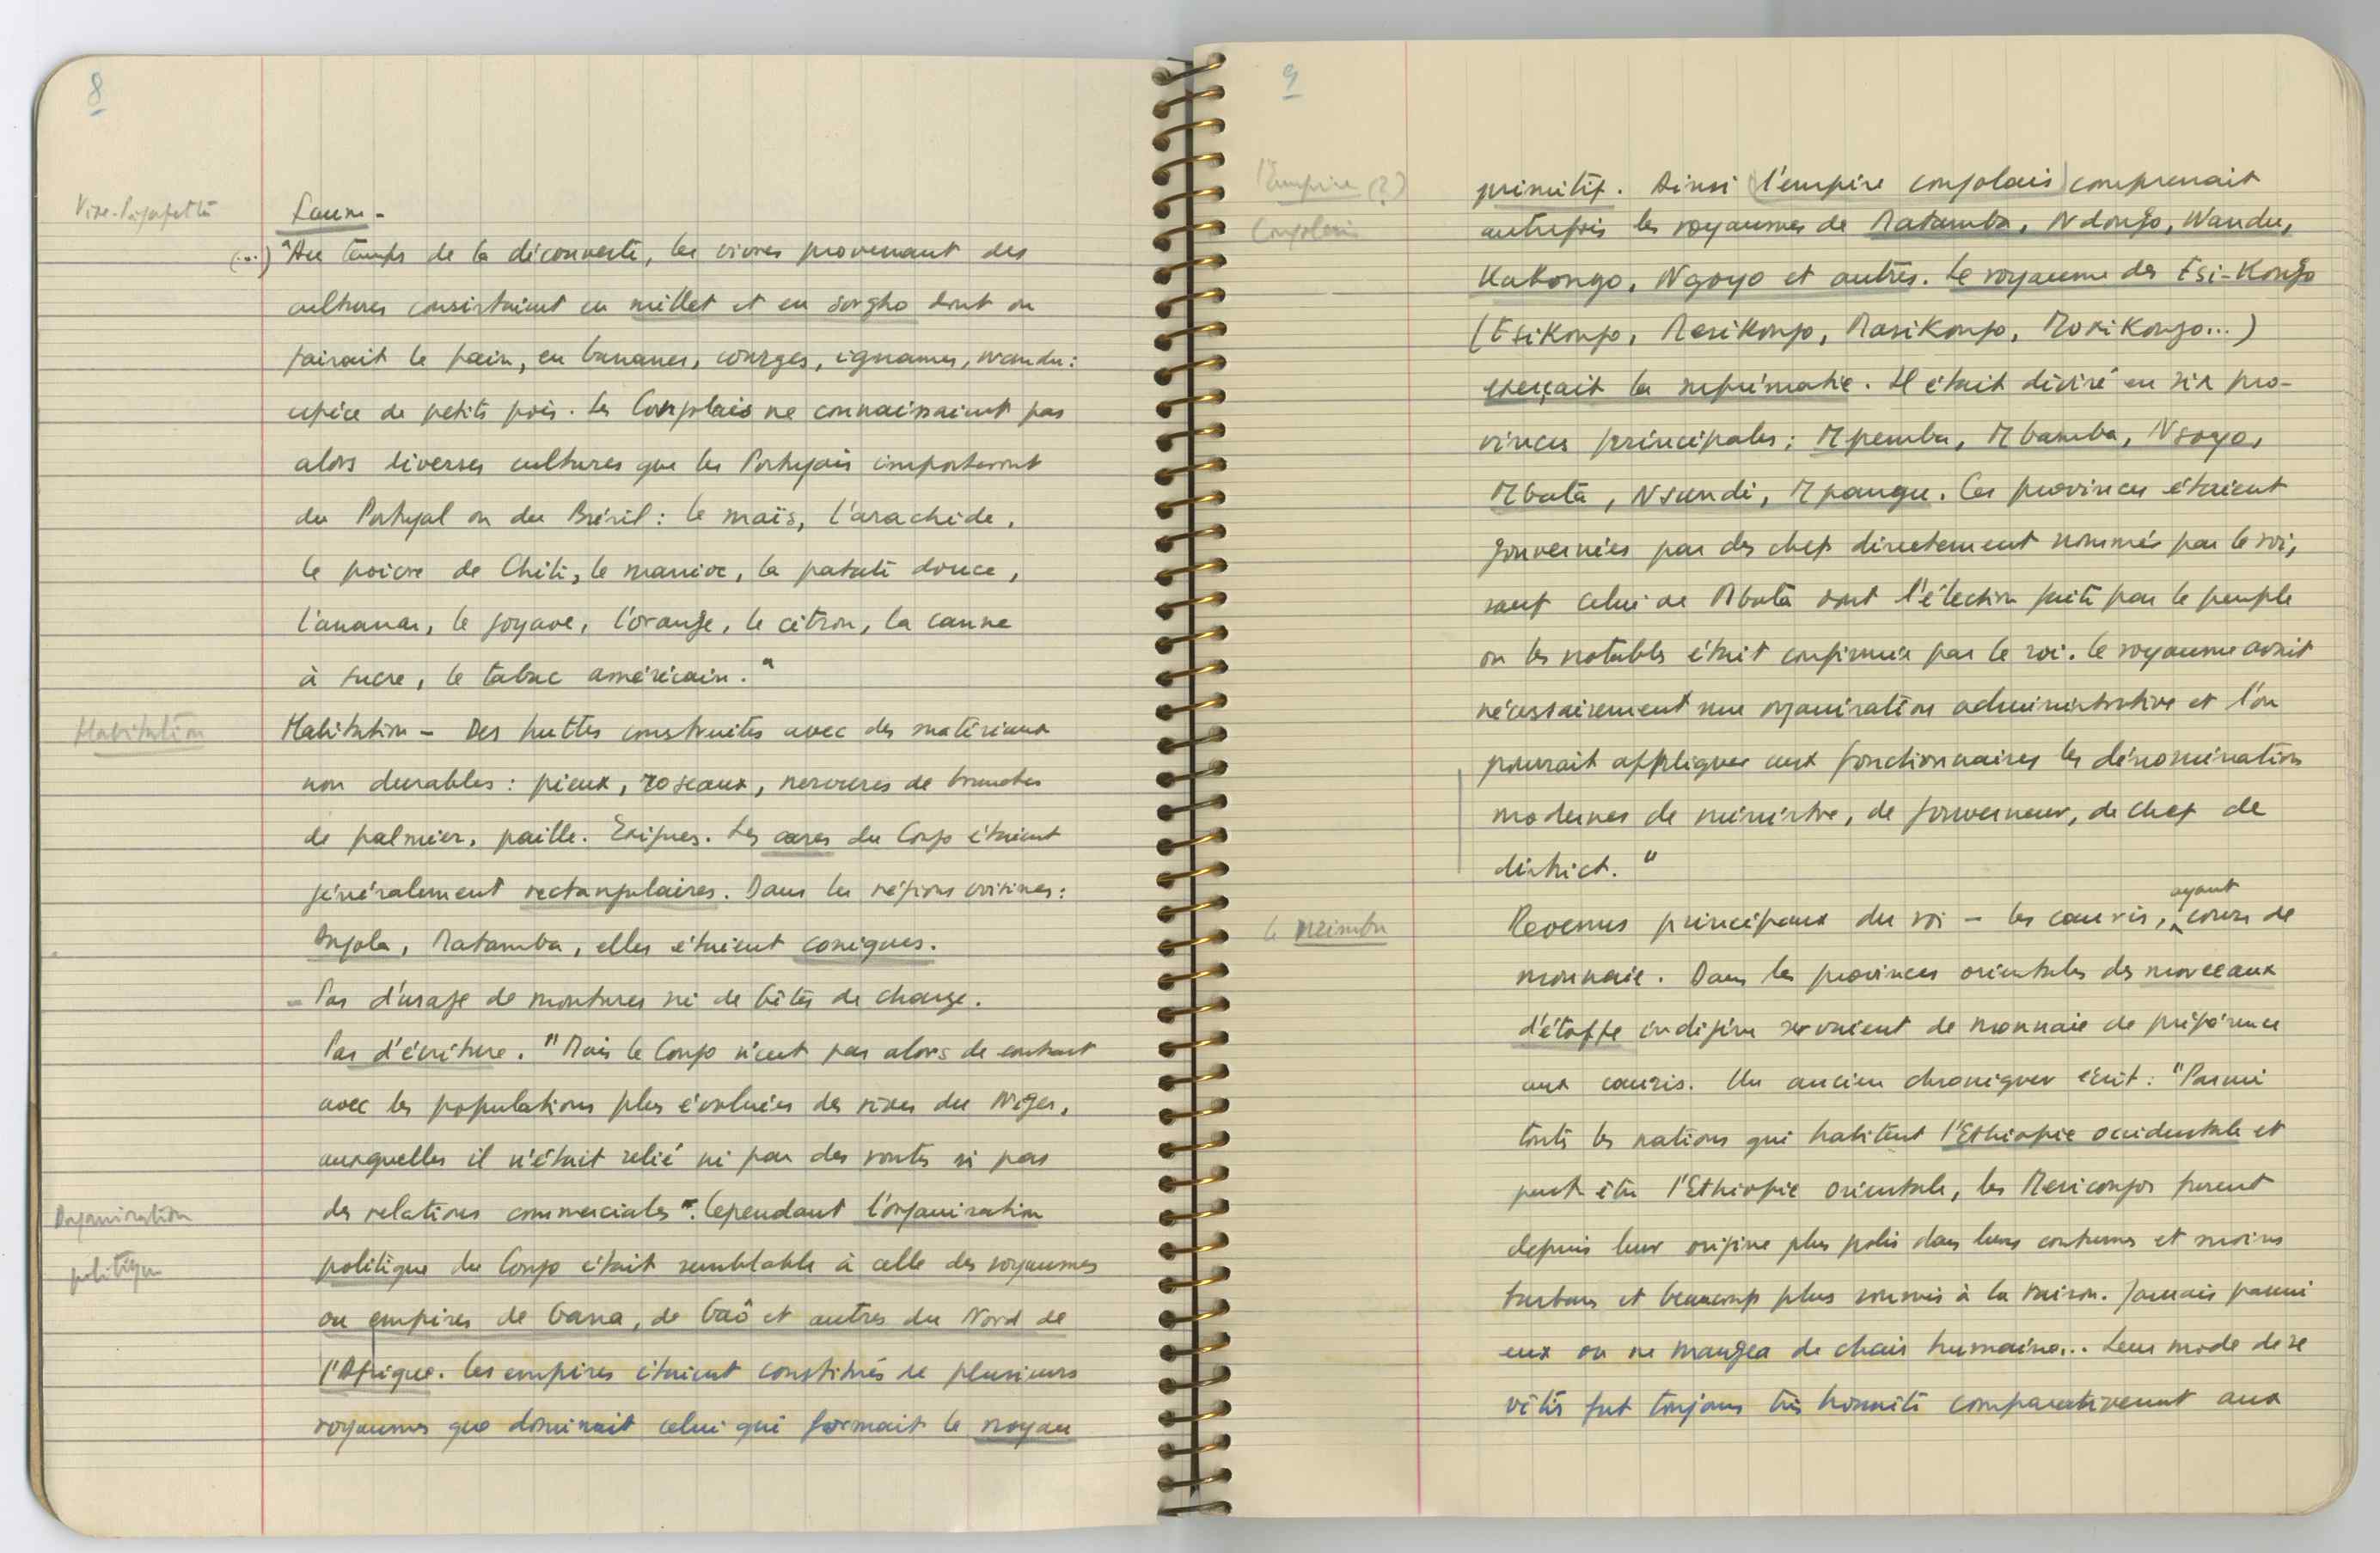 8
Faune -
(...) "Au temps de la découverte, les vivres provenant des
cultures consistaient en millet et en sorgho dont on
faisait le pain, en bananes, courges, ignames, wandu :
espèce de petits pois. Les Congolais ne connaissaient pas
alors diverses cultures que les Portugais importeront
du Portugal ou du Brésil : le maïs, l'arachide,
le poivre de Chili, le manioc, la patate douce,
l'ananas, le goyave, l'orange, le citron, la canne
à sucre, le tabac américain."
Habitation
Habitation - Des huttes construites avec des matériaux
non durables : pieux, roseaux, nervures de branches
de palmier, paille. Exigues. Les cases du Congo étaient
généralement rectangulaires. Dans les régions voisines :
Angola, Matamba, elles étaient coniques.
- Pas d'usage de montures ni de bêtes de charge.
Pas d'écriture. "Mais le Congo n'eut pas alors de contact
avec les populations plus évoluées des rives du Niger,
auxquelles il n'était relié ni par des routes ni par
des relations commerciales". Cependant l'organisation
Organisation
politique
politique du Congo était semblable à celle des royaumes
ou empires de Gana, de Gaô et autres du Nord de
l'Afrique. Ces empires étaient constitués de plusieurs
royaumes que dominait celui qui formait le noyau
9
l'Empire (?)
Congolais
primitif. Ainsi (l'empire congolais) comprenait
autrefois les royaumes de Matamba, Ndongo, Wandu,
Kakongo, Ngoyo et autres. Le royaume des Esi-Kongo
(Esikongo, Mesikongo, Masikongo, Moxikongo...)
exerçait la suprématie. Il était divisé en six pro-
vinces principales : Mpemba, Mbamba, Nsoyo,
Mbata, Nsundi, Mpangu. Ces provinces étaient
gouvernées par des chefs directement nommés par le roi,
sauf celui de Mbata dont l'élection faite par le peuple
ou les notables était confirmée par le roi. Le royaume avait
nécessairement une organisation administrative et l'on
pourrait appliquer aux fonctionnaires les dénomination
modernes de ministre, de gouverneur, de chef de
district."
le nzimbu
Revenus principaux du roi - les cauris, ayant cours de
monnaie. Dans les provinces orientales des morceaux
d'étoffe indigène servaient de monnaie de préférence
aux cauris. Un ancien chroniquer écrit : "Parmi
toute les nations qui habitent l'Ethiopie occidentale et
peut être l'Ethiopie Orientale, les Mesicongos furent
depuis leur origine plus polis dans leurs coutumes et moins
barbares et beaucoup plus soumis à la raison. Jamais parmi
eux on ne mangea de chair humaine... Leur mode de se
vêtir fut toujours très honnête comparativement aux